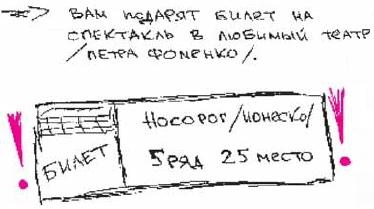 ВАМ ПОДАРЯТ БИЛЕТ НА
СПЕКТАКЛЬ В ЛЮБИМЫЙ ТЕАТР
/ПЕТРА ФОМЕНКО/.
НОСОРОГ/ИОНЕСКО/
БИЛЕТ
5 РЯД 25 МЕСТО